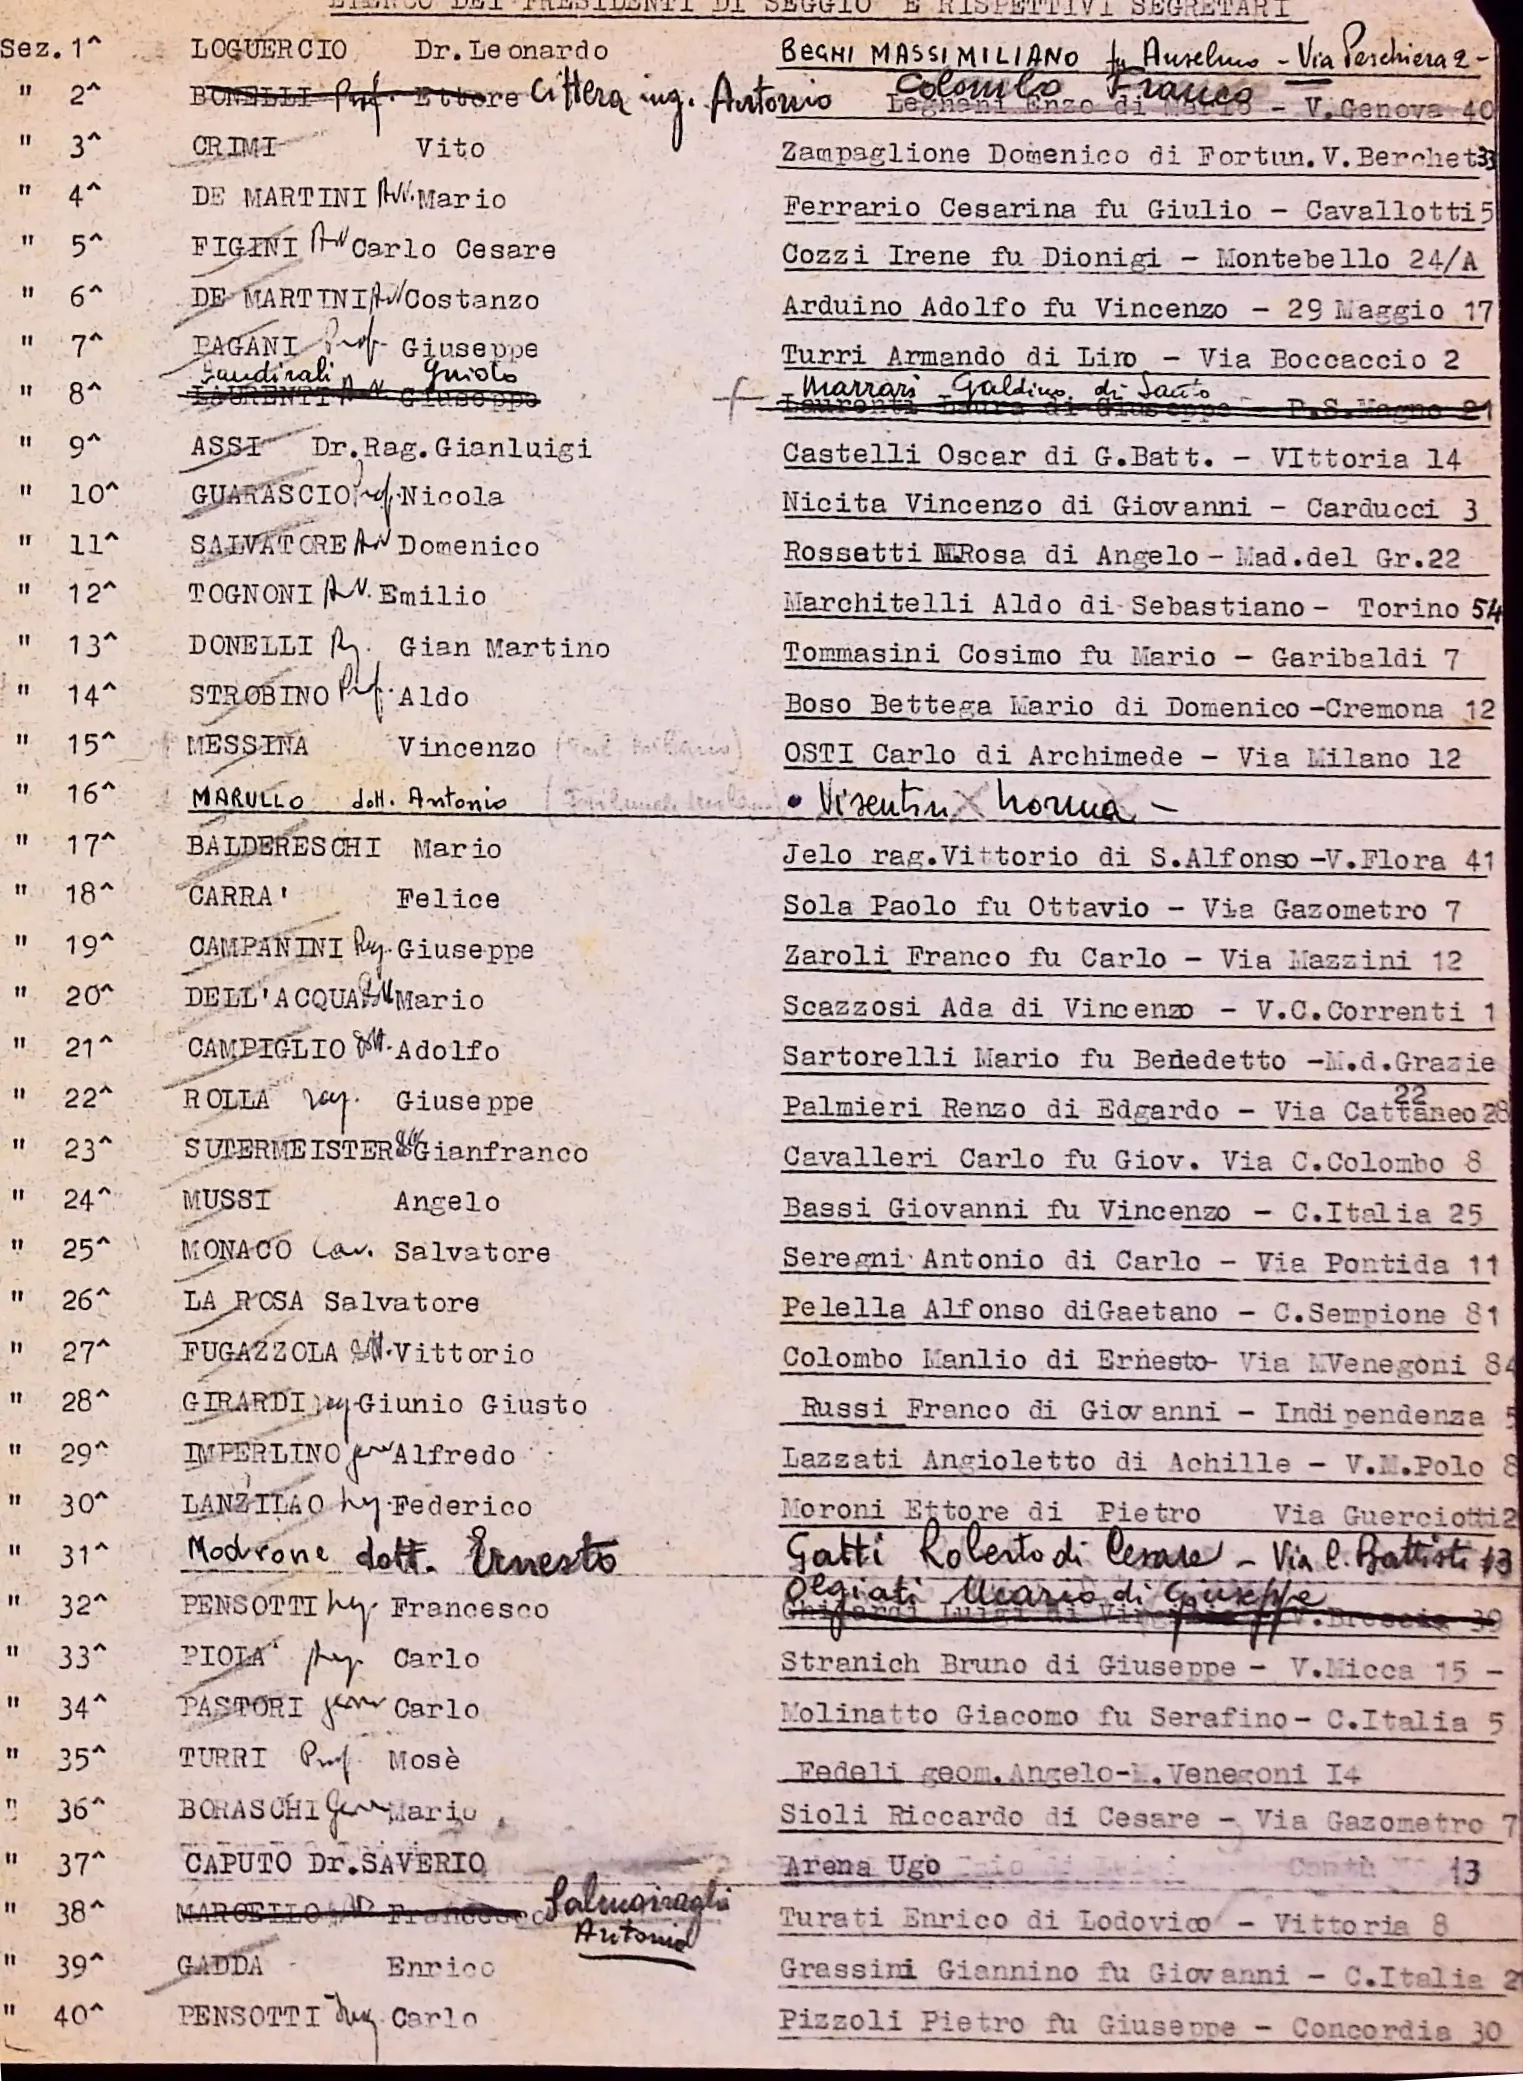 ELENCO DEI PRESIDENTI DI SEGGIO E RISPETTIVI SEGRETARI
Sez. 1^ LOGUERCIO Dr. Leonardo BEGHI MASSIMILIANO fu Anselmo - Via Peschiera 2 -
" 2^ BONELLI Prof. Ettore Cittera ing. Antonio Colombo Franco Legnani Enzo di Mario - V. Genova 40
" 3^ CRIMI Vito Zampaglione Domenico di Fortun. V. Berchet 33
" 4^ DE MARTINI Avv. Mario Ferrario Cesarina fu Giulio - Cavallotti 5
" 5^ FIGINI Avv Carlo Cesare Cozzi Irene fu Dionigi - Montebello 24/A
" 6^ DE MARTINI Avv Costanzo Arduino Adolfo fu Vincenzo - 29 Maggio 17
" 7^ PAGANI Prof. Giuseppe Turri Armando di Lino - Via Boccaccio 2
Guido Marrari Galdino di Santo
" 8^ LAURENTI Avv. Giuseppe Laurenti Laura di Giuseppe - P.S.Magno 21
" 9^ ASSI Dr.Rag.Gianluigi Castelli Oscar di G.Batt. - VIttoria 14
" 10^ GUARASCIO Prof. Nicola Nicita Vincenzo di Giovanni - Carducci 3
" 11^ SALVATORE Avv Domenico Rossetti M.Rosa di Angelo - Mad.del Gr.22
" 12^ TOGNONI Avv. Emilio Marchitelli Aldo di Sebastiano - Torino 54
" 13^ DONELLI Gian Martino Tommasini Cosimo fu Mario - Garibaldi 7
" 14^ STROBINO Prof. Aldo Boso Bettega Mario di Domenico -Cremona 12
" 15^ MESSINA Vincenzo OSTI Carlo di Archimede - Via Milano 12
" 16^ MARULLO dott. Antonio • Visentin Norma -
" 17^ BALDERESCHI Mario Jelo rag.Vittorio di S.Alfonso -V.Flora 41
" 18^ CARRA' Felice Sola Paolo fu Ottavio - Via Gazometro 7
" 19^ CAMPANINI Rag. Giuseppe Zaroli Franco fu Carlo - Via Mazzini 12
" 20^ DELL'ACQUA Mario Scazzosi Ada di Vincenzo - V.C.Correnti 1
" 21^ CAMPIGLIO dott. Adolfo Sartorelli Mario fu Benedetto -M.d.Grazie
22
" 22^ ROLLA rag. Giuseppe Palmieri Renzo di Edgardo - Via Cattaneo 28
" 23^ SUTERMEISTER Gianfranco Cavalleri Carlo fu Giov. Via C.Colombo 8
" 24^ MUSSI Angelo Bassi Giovanni fu Vincenzo - C.Italia 25
" 25^ MONACO Cav. Salvatore Seregni Antonio di Carlo - Via Pontida 11
" 26^ LA ROSA Salvatore Pelella Alfonso diGaetano - C.Sempione 81
" 27^ FUGAZZOLA dott. Vittorio Colombo Manlio di Ernesto- Via M.Venegoni 84
" 28^ GIRARDI rag Giunio Giusto Russi Franco di Giovanni - Indipendenza 5
" 29^ IMPERLINO Alfredo Lazzati Angioletto di Achille - V.M.Polo 8
" 30^ LANZILAO Federico Moroni Ettore di Pietro Via Guerciotti 2
" 31^ Modrone dott. Ernesto Gatti Roberto di Cesare - Via C. Battisti 13
Olgiati Mario di Giuseppe
" 32^ PENSOTTI Francesco V.Brescia 39
" 33^ PIOLA' Carlo Stranich Bruno di Giuseppe - V.Micca 15 -
" 34^ PASTORI geom Carlo Molinatto Giacomo fu Serafino - C.Italia 5
" 35^ TURRI Prof. Mosè Fedeli geom.Angelo-M.Venegoni I4
" 36^ BORASCHI Geom Mario Sioli Riccardo di Cesare - Via Gazometro 7
" 37^ CAPUTO Dr.SAVERIO Arena Ugo 13
" 38^ MARCELLO Francesco Salmoiraghi Antonio Turati Enrico di Lodovico - Vittoria 8
" 39^ GADDA - Enrico Grassini Giannino fu Giovanni - C.Italia 2
" 40^ PENSOTTI Carlo Pizzoli Pietro fu Giuseppe - Concordia 30